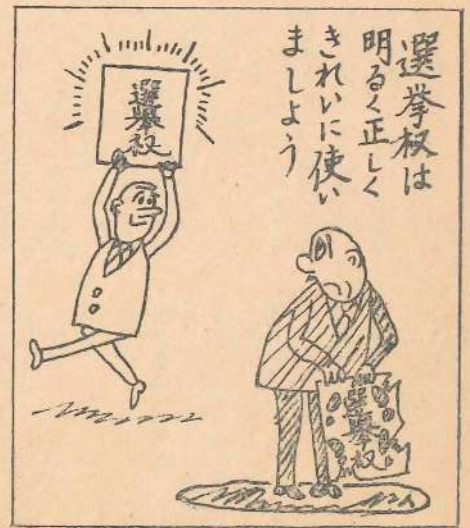 選挙权は
明るく正しく
きれいに使い
ましよう
選挙权
選挙权